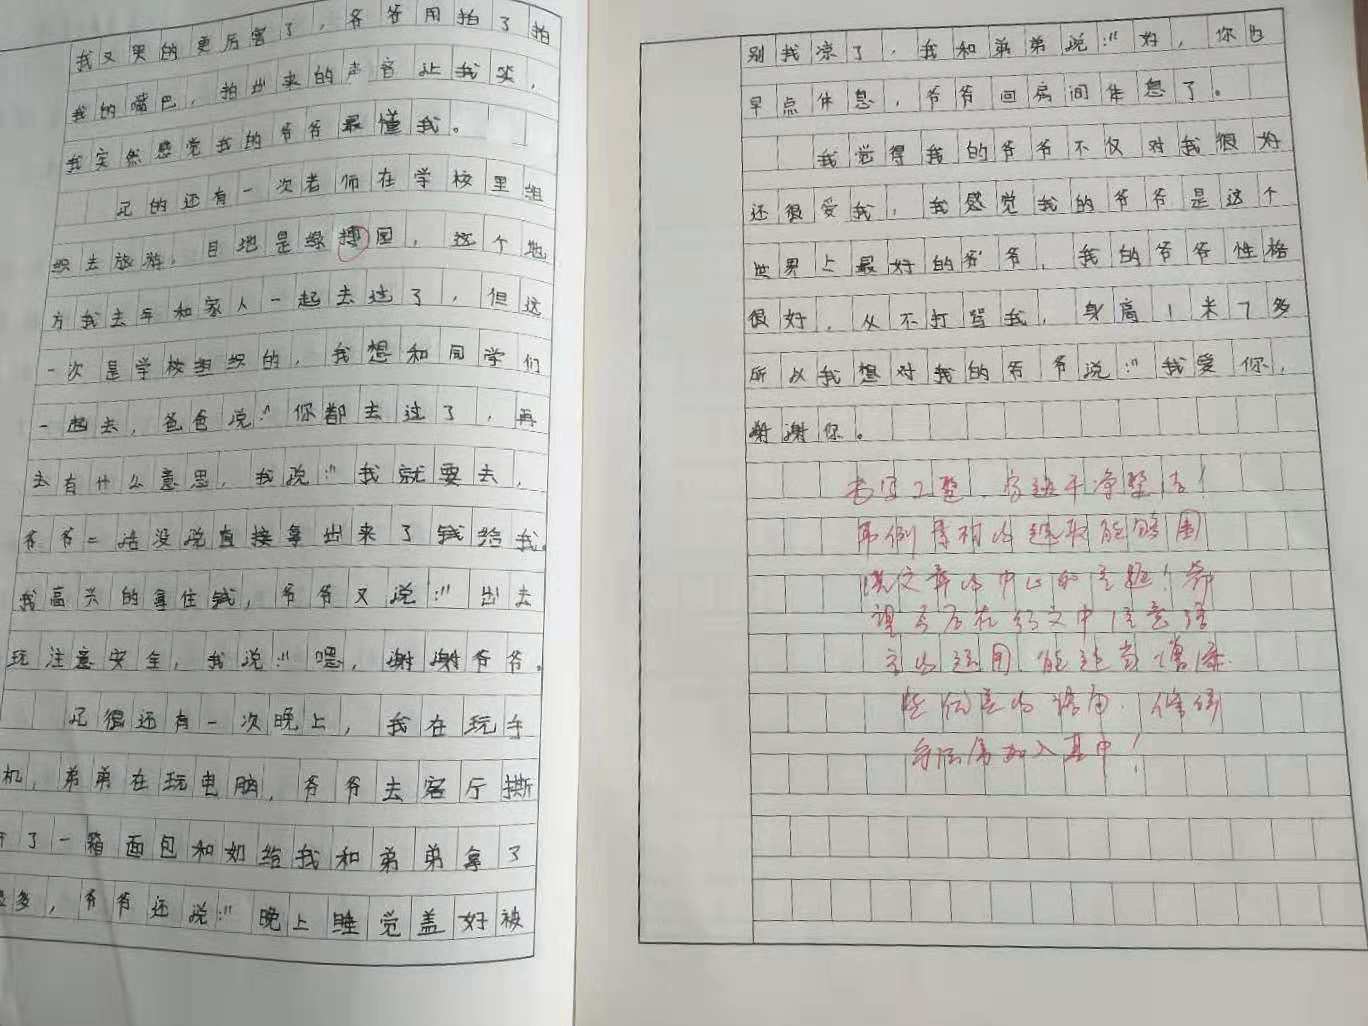 我又哭的更厉害了，爷爷用拍了拍
我的嘴巴，拍出来的声音让我笑，
我突然感觉我的爷爷最懂我。
记的还有一次老师在学校里组
织去旅游，目地是绿博园，这个地
方我去年和家人一起去过了，但这
一次是学校组织的，我想和同学们
一起去，爸爸说：“你都去过了，再
去有什么意思，我说：“我就要去，
爷爷二话没说直接拿出来了钱给我。
我高兴的拿住钱，爷爷又说：“出去
玩注意安全，我说：“嗯，谢谢爷爷。
记得还有一次晚上，我在玩手
机，弟弟在玩电脑，爷爷去客厅撕
开了一箱面包和奶给我和弟弟拿了
很多，爷爷还说：“晚上睡觉盖好被
别我凉了，我和弟弟说：“好，你也
早点休息，爷爷回房间休息了。
我觉得我的爷爷不仅对我很好
还很爱我，我感觉我的爷爷是这个
世界上最好的爷爷，我的爷爷性格
很好，从不打骂我，身高1米7多
所以我想对我的爷爷说：“我爱你，
谢谢你。
书写工整，字迹干净整洁！
事例素材的选取能够围
绕文章的中心和主题！希
望今后在行文中注意语
言的运用，能适当增添
些优美的语句，修辞
手法等加入其中！